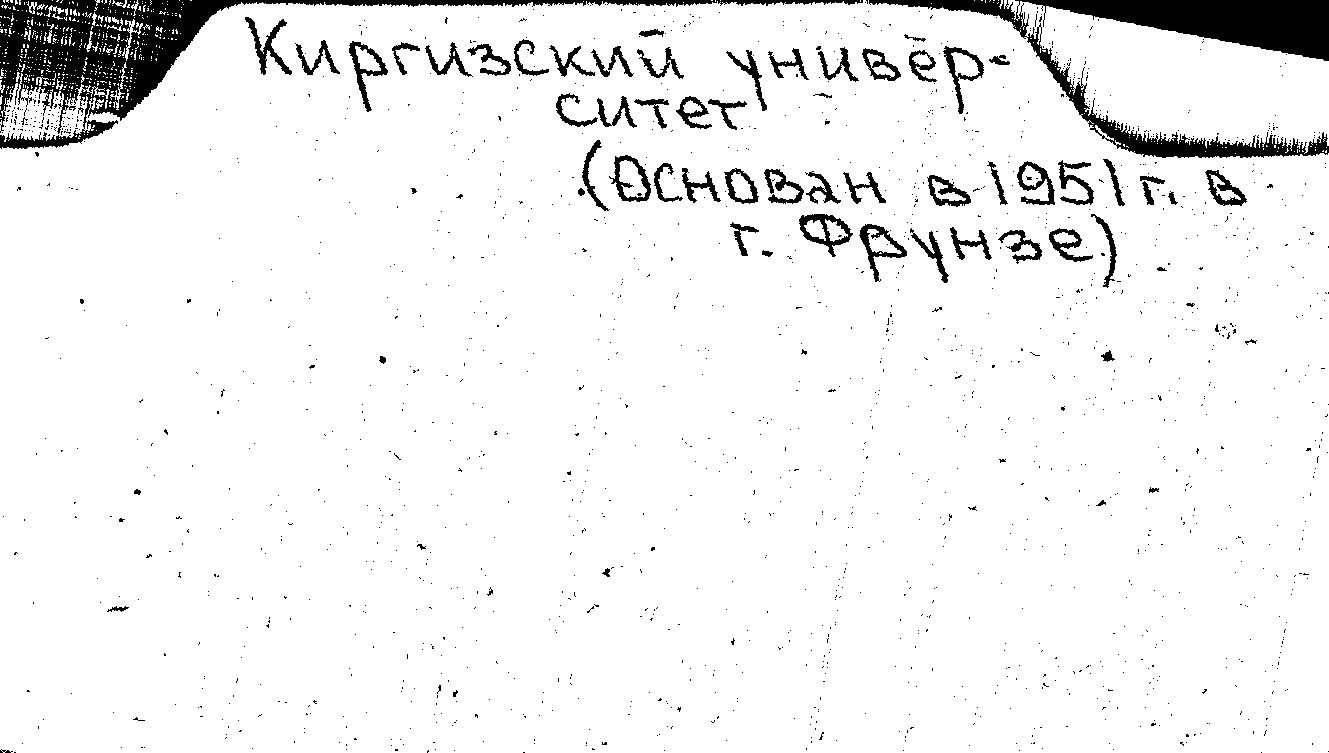 Киргизский универ-
ситет
(Основан в 1951 г. в
г. Фрунзе)